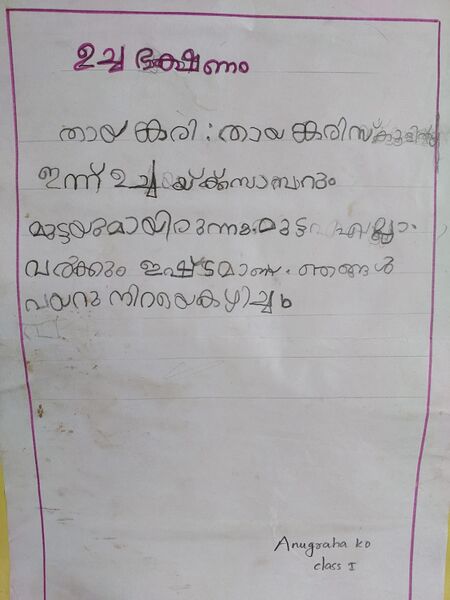 ഉച്ച ഭക്ഷണം
തായങ്കരി : തായങ്കരി സ്കൂളിൽ
ഇന്ന് ഉച്ചയ്ക്ക് സാമ്പാറും
മുട്ടയുമായിരുന്നു. മുട്ട എല്ലാ
വർക്കും ഇഷ്ടമാണ്. ഞങ്ങൾ
വയറു നിറയെ കഴിച്ചും
Anugraha K D
class I